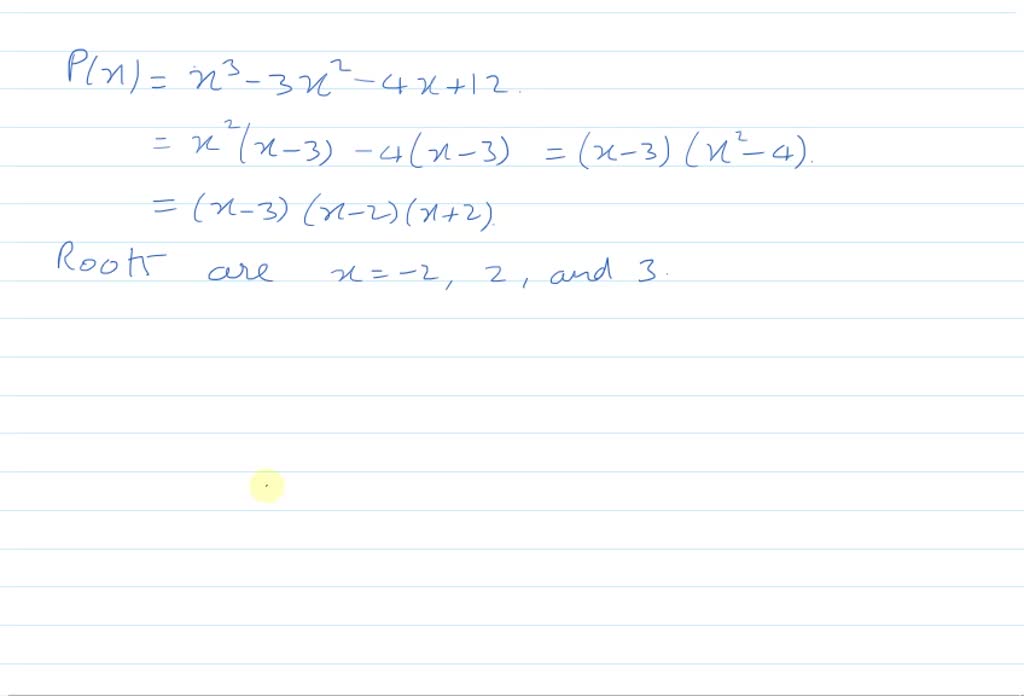 P(x) = x³ - 3x² - 4x + 12.
= x²(x-3) - 4(x-3) = (x-3)(x²-4).
= (x-3)(x-2)(x+2).
Roots are x = -2, 2, and 3.